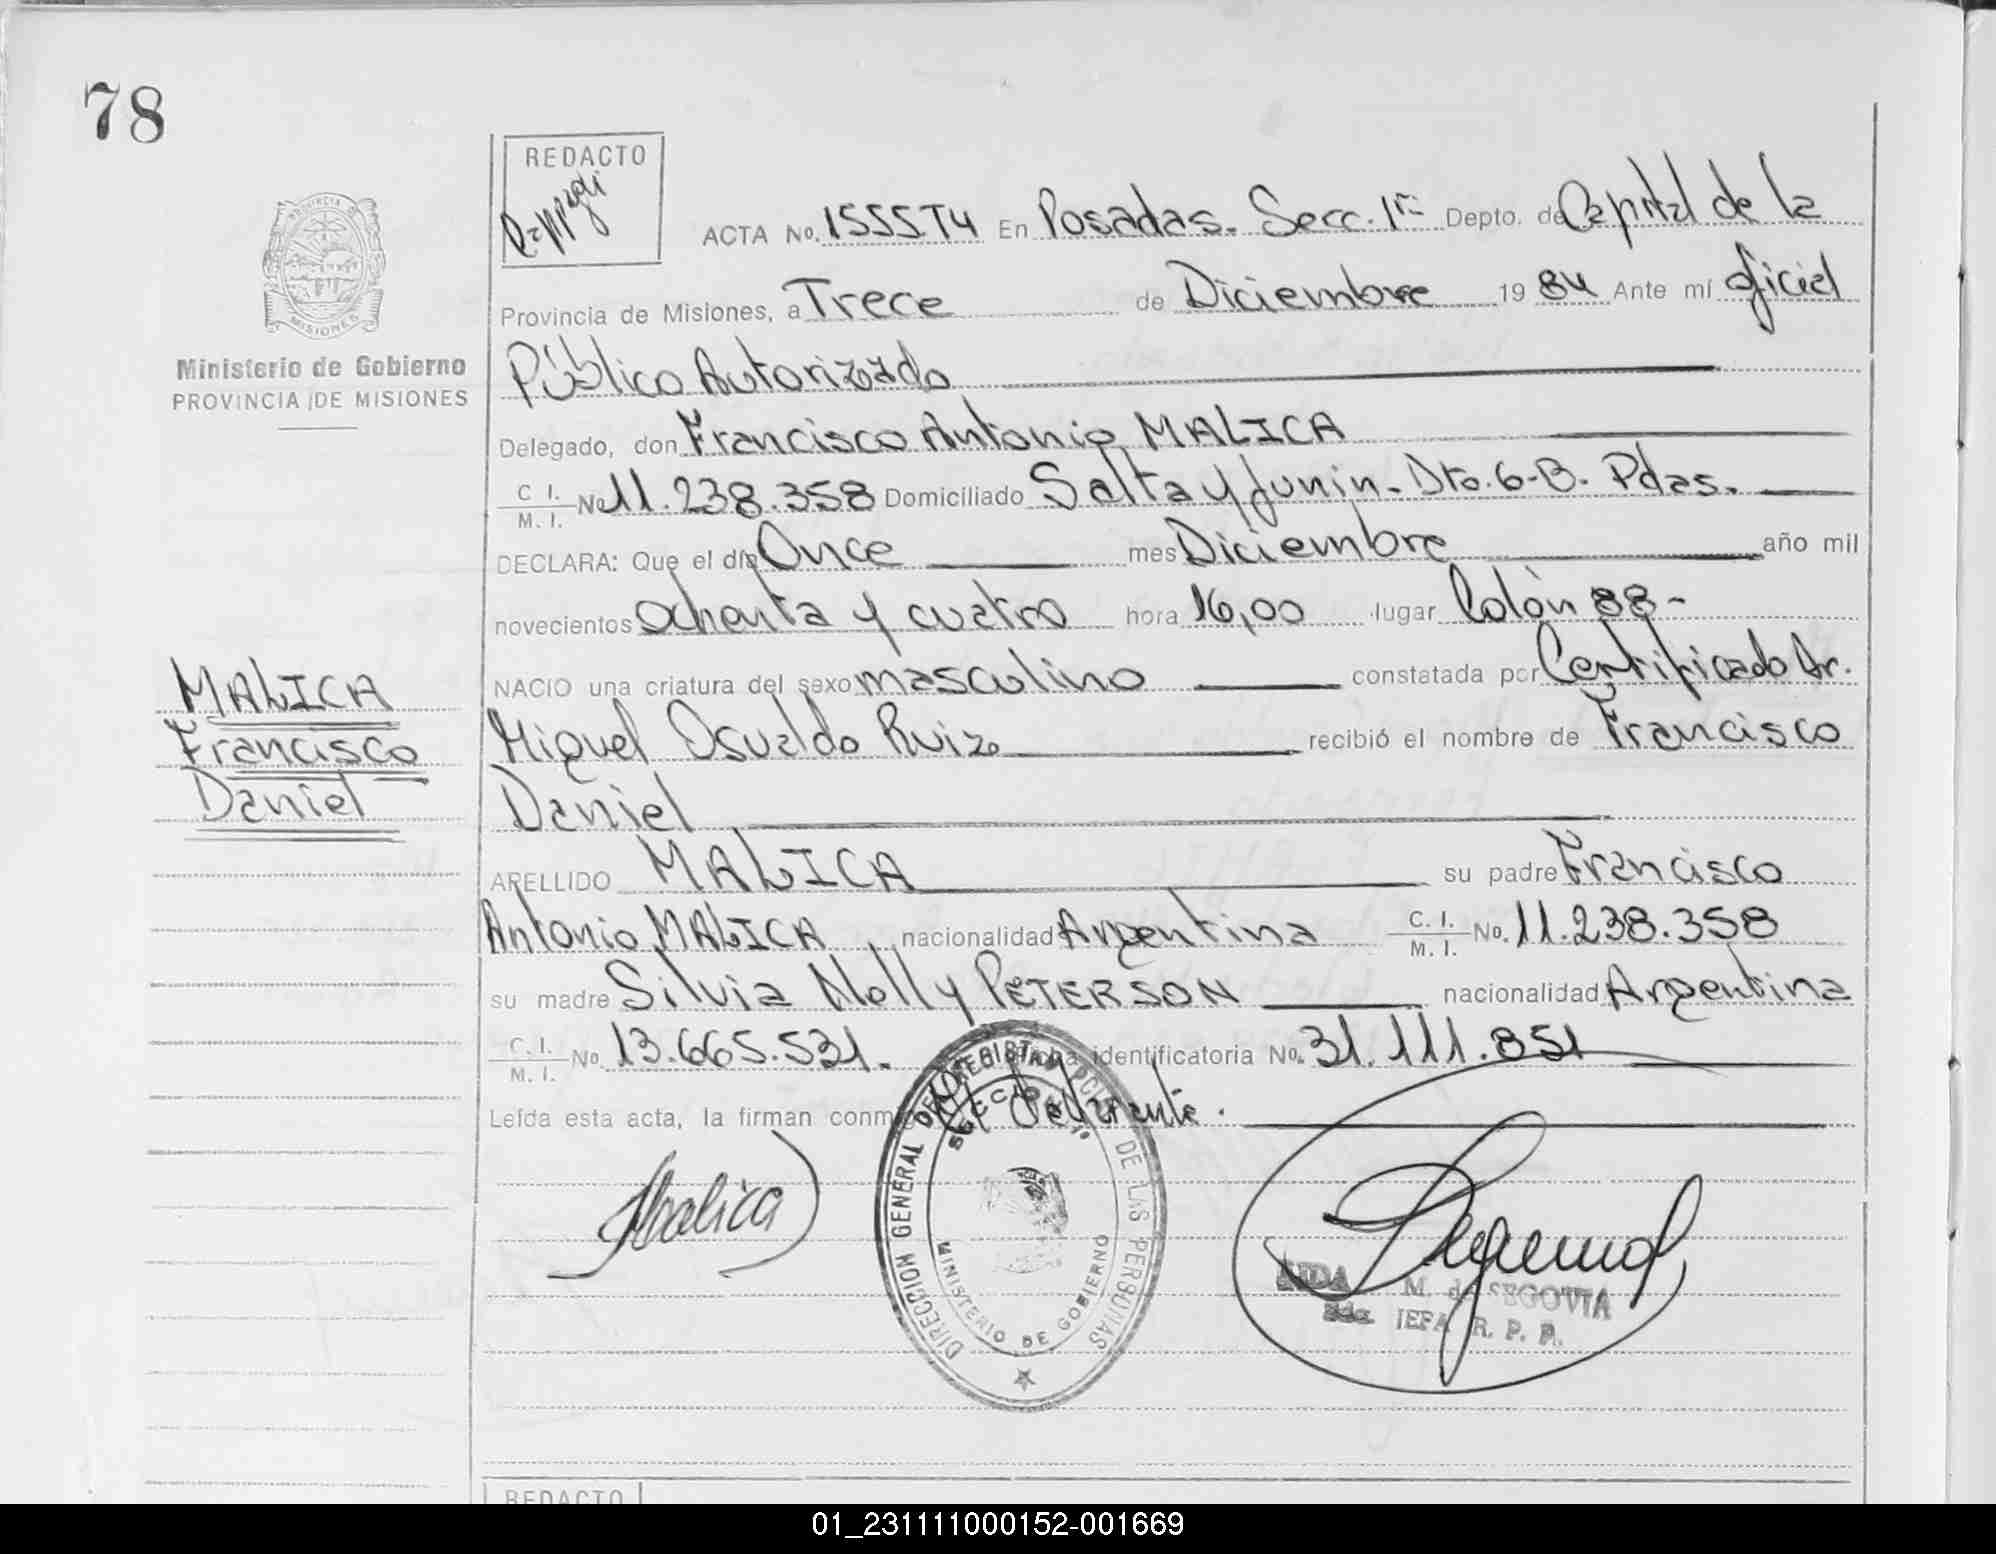 78
REDACTO
PROVINCIA DE
MISIONES
Ministerio de Gobierno
PROVINCIA DE MISIONES
ACTA No. 1555T4 En Posadas. Secc. 1ra Depto. de Capital de la
Provincia de Misiones, a Trece de Diciembre 19 84 Ante mí oficial
Público Autorizado
Delegado, don Francisco Antonio MALICA
C. I. / M. I. No 11.238.358 Domiciliado Salta y Junin. Dto. 6-B. Pdas.
DECLARA: Que el día Once mes Diciembre año mil
novecientos ochenta y cuatro hora 16,00 lugar Colón 88-
NACIO una criatura del sexo masculino constatada por Certificado Dr.
Miguel Osvaldo Ruizo recibió el nombre de Francisco
Daniel
MALICA
Francisco
Daniel
APELLIDO MALICA su padre Francisco
Antonio MALICA, nacionalidad Argentina C. I. / M. I. No. 11.238.358
su madre Silvia Nelly PETERSON nacionalidad Argentina
C. I. / M. I. No. 13.665.531. ficha identificatoria No. 31.111.851
Leída esta acta, la firman conmigo el declarante.
Malica
DIRECCION GENERAL DEL REGISTRO PCIAL. DE LAS PERSONAS
SECCION 1ª
MINISTERIO DE GOBIERNO
AIDA M. de SEGOVIA
2da. JEFA R. P. P.
REDACTO
01_231111000152-001669